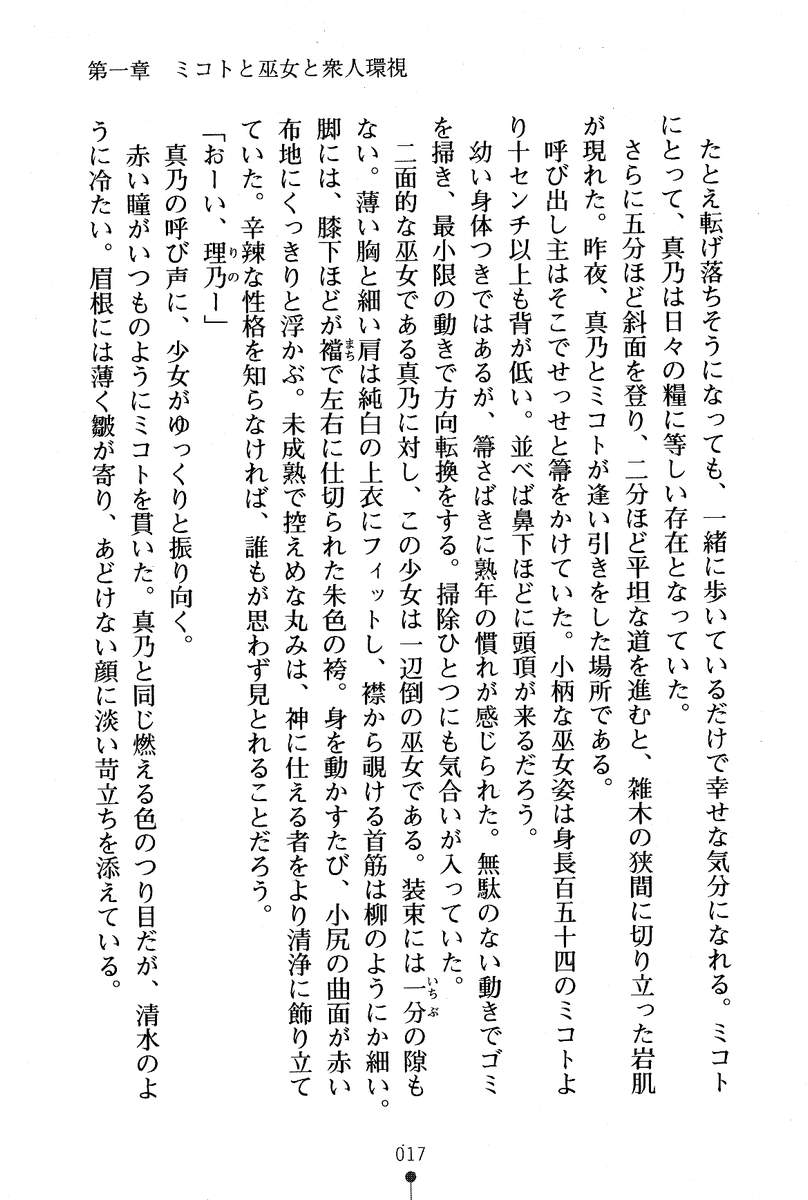 第一章　ミコトと巫女と衆人環視
たとえ転げ落ちそうになっても、一緒に歩いているだけで幸せな気分になれる。ミコト
にとって、真乃は日々の糧に等しい存在となっていた。
さらに五分ほど斜面を登り、二分ほど平坦な道を進むと、雑木の狭間に切り立った岩肌
が現れた。昨夜、真乃とミコトが逢い引きをした場所である。
呼び出し主はそこでせっせと箒をかけていた。小柄な巫女姿は身長百五十四のミコトよ
り十センチ以上も背が低い。並べば鼻下ほどに頭頂が来るだろう。
幼い身体つきではあるが、箒さばきに熟年の慣れが感じられた。無駄のない動きでゴミ
を掃き、最小限の動きで方向転換をする。掃除ひとつにも気合いが入っていた。
二面的な巫女である真乃に対し、この少女は一辺倒の巫女である。装束には一分の隙も
ない。薄い胸と細い肩は純白の上衣にフィットし、襟から覗ける首筋は柳のようにか細い。
脚には、膝下ほどが襠で左右に仕切られた朱色の袴。身を動かすたび、小尻の曲面が赤い
布地にくっきりと浮かぶ。未成熟で控えめな丸みは、神に仕える者をより清浄に飾り立て
ていた。辛辣な性格を知らなければ、誰もが思わず見とれることだろう。
「おーい、理乃ー」
真乃の呼び声に、少女がゆっくりと振り向く。
赤い瞳がいつものようにミコトを貫いた。真乃と同じ燃える色のつり目だが、清水のよ
うに冷たい。眉根には薄く皺が寄り、あどけない顔に淡い苛立ちを添えている。
いちぶ
まち
りの
017